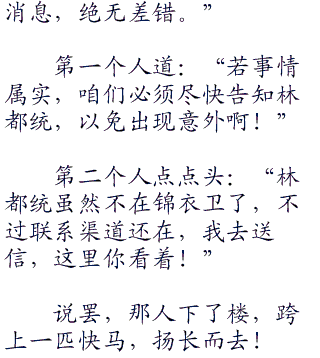 消息，绝无差错。”
第一个人道：“若事情
属实，咱们必须尽快告知林
都统，以免出现意外啊！”
第二个人点点头：“林
都统虽然不在锦衣卫了，不
过联系渠道还在，我去送
信，这里你看着！”
说罢，那人下了楼，跨
上一匹快马，扬长而去！